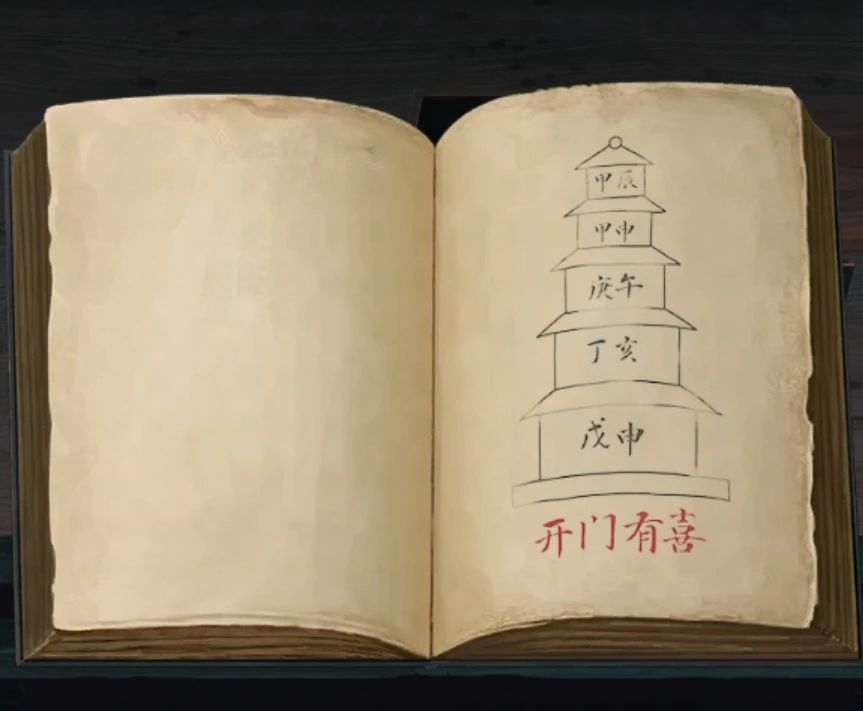 甲辰
甲申
庚午
丁亥
戊申
开门有喜